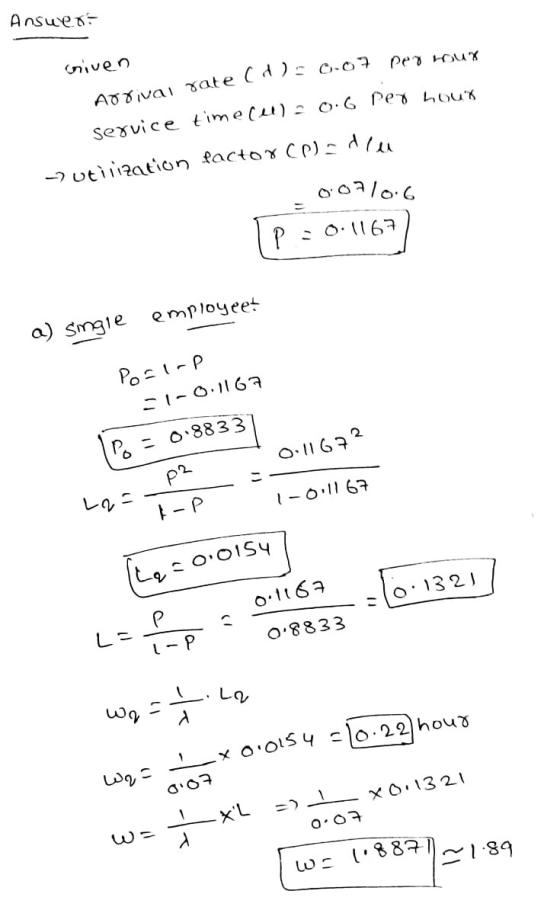 Answer:-
Given
Arrival rate (λ) = 0.07 per hour
service time (μ) = 0.6 per hour
→ utilization factor (P) = λ/μ
= 0.07/0.6
P = 0.1167
a) single employee:
P₀ = 1-P
= 1-0.1167
P₀ = 0.8833
Lq = P²/1-P = 0.1167²/1-0.1167
Lq = 0.0154
L = P/1-P = 0.1167/0.8833 = 0.1321
Wq = 1/λ . Lq
Wq = 1/0.07 x 0.0154 = 0.22 hour
W = 1/λ x L => 1/0.07 x 0.1321
W = 1.8871 ≃ 1.89